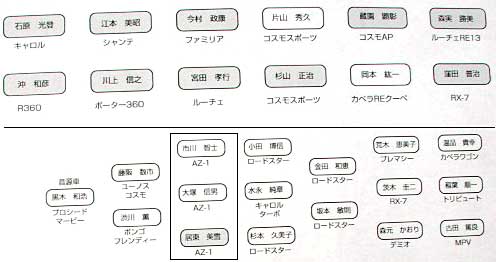 石原 光登 江本 美昭 今村 政康 片山 秀久 顕彰 森実 路美
キャロル シャンテ ファミリア コスモスポーツ コスモAP ルーチェRE13
沖 和彦 川上 信之 宮田 孝行 杉山 正治 岡本 紘一 窪田 普治
R360 ポーター360 ルーチェ コスモスポーツ カペラREクーペ RX-7
市川 智士 小田 博信 荒木 恵美子 温品 貴幸
AZ-1 ロードスター プレマシー カペラワゴン
藤飯 数市 金田 和恵
ユーノス
コスモ ロードスター
音源車
黒木 和浩 大塚 信男 水永 純章 茨木 圭二 稲葉 順一
プロシード
マービー AZ-1 キャロル
ターボ RX-7 トリビュート
渋川 薫 坂本 敏則
ボンゴ
フレンディー ロードスター
居東 美雪 杉本 久美子 森元 かおり 古田 篤良
AZ-1 ロードスター デミオ MPV